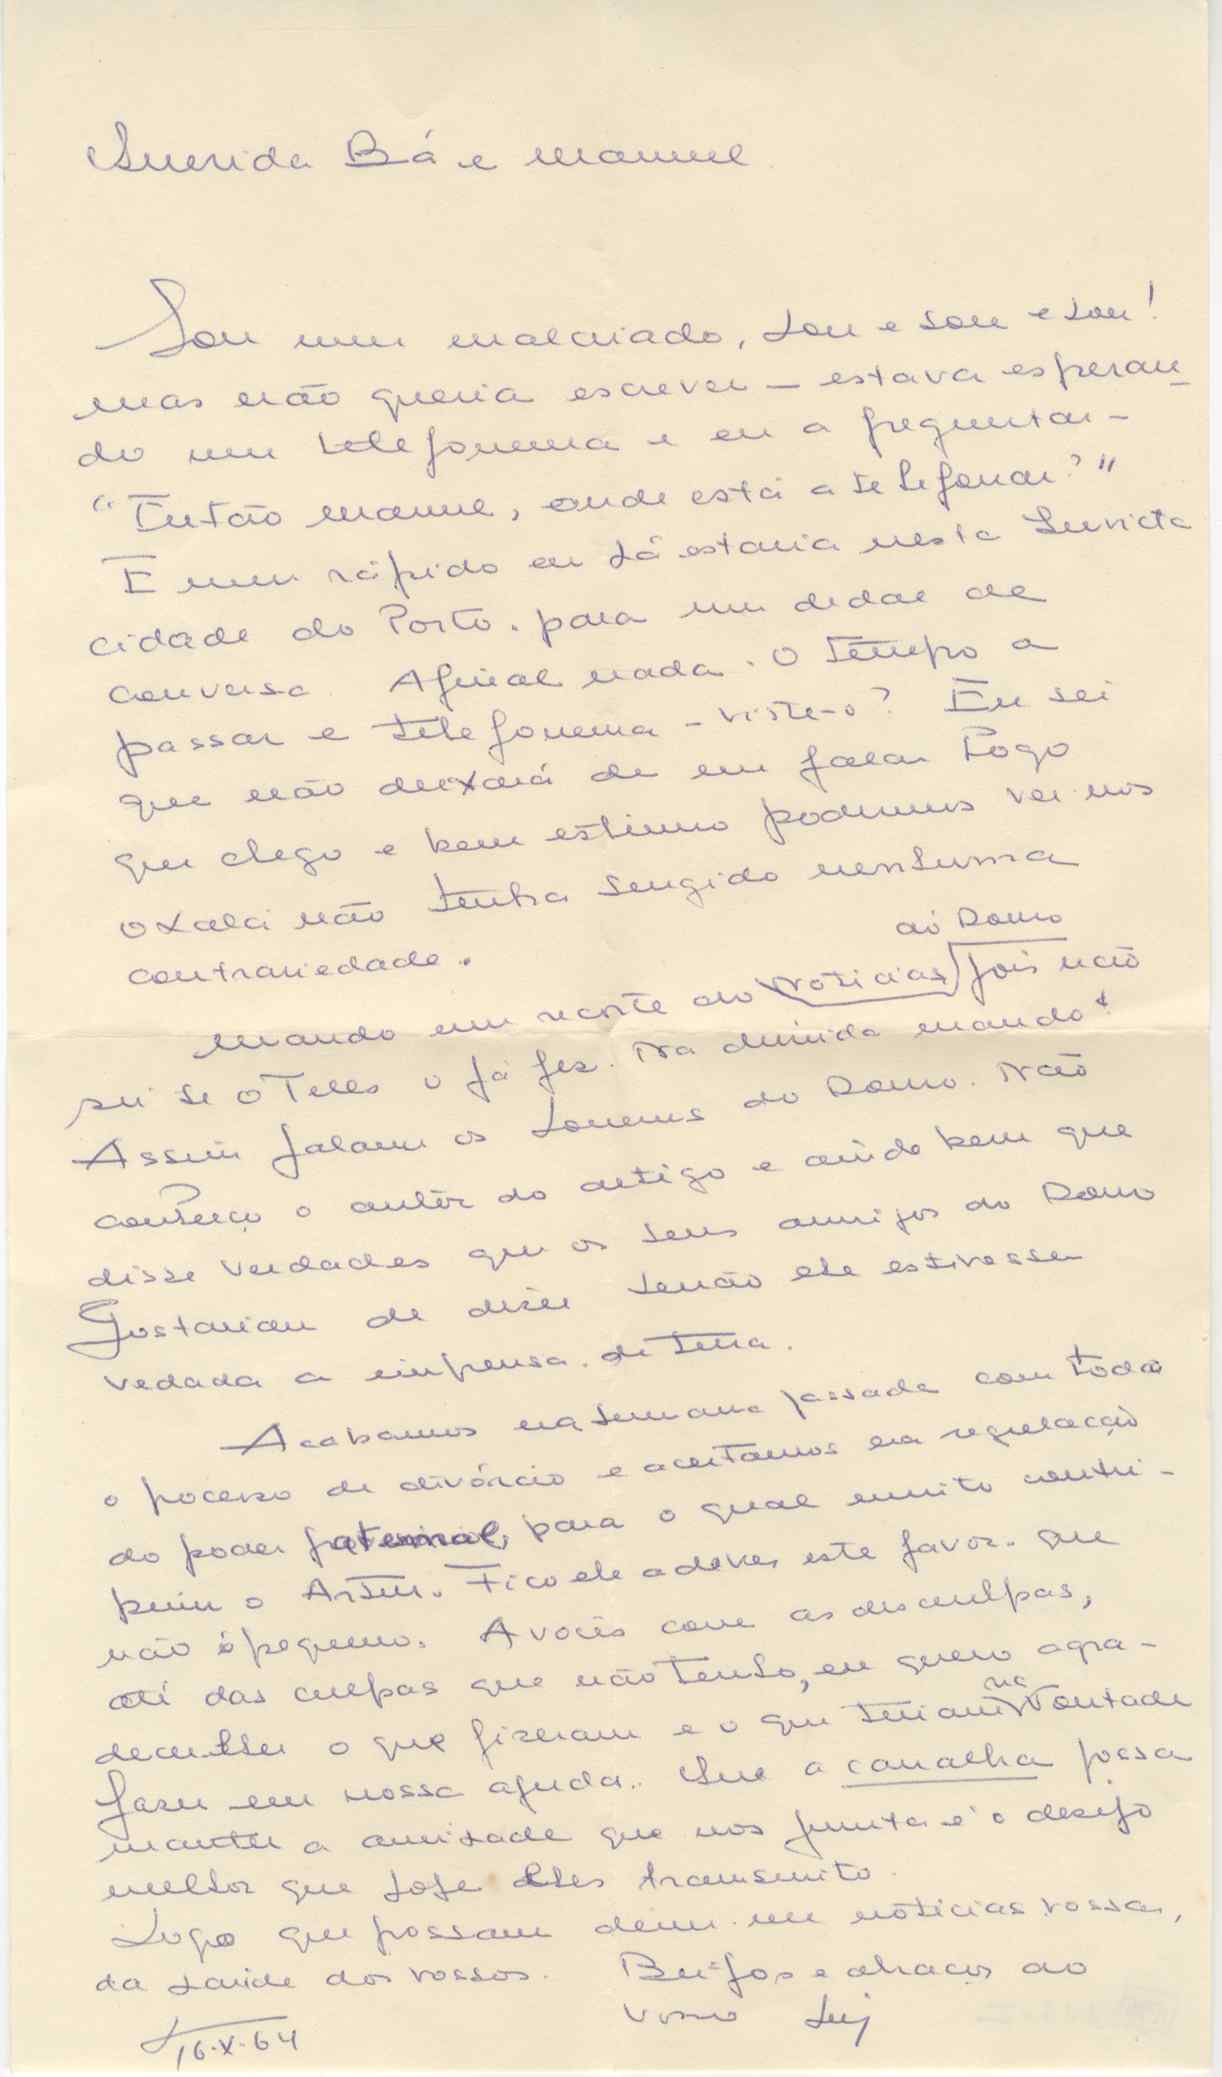 Querida Bá e Manuel
Sou um malcriado, sou e sou e sou!
mas não queria escrever – estava esperan-
do um telefonema e eu a preguntar –
"Então Manuel, onde está a telefonar?"
E num rápido eu lá estaria nesta Invicta
cidade do Porto. para um dedal de
conversa. Afinal nada. O tempo a
passar e telefonema – viste-o? Eu sei
que não deixará de me falar logo
que chego e bem estimo podermos ver-nos
oxalá não tenha surgido nenhuma
contrariedade.
ao Douro
Mando um recorte do Notícias pois não
sei se o Teles o já fez. Na dúvida mando!
Assim falam os homens do Douro. Não
conheço o autor do artigo e ainda bem que
disse verdades que os seus amigos do Douro
Gostariam de dizer senão ele estivesse
vedada a imprensa. de terra.
Acabamos na semana passada com todo
o pocesso de divórcio e aceitamos na regulação
do poder paternal, para o qual muito contri-
buiu o Artur. Fico ele a dever este favor. que
não é pequeno. A vocês com as desculpas,
até das culpas que não tenho, eu quero agra-
decer-lhes o que fizeram e o que teriam na vontade
fazer em nossa ajuda. Que a canalha possa
manter a amizade que nos junta é o desejo
melhor que hoje lhes transmito.
Logo que possam dem-me nóticias vossas,
da saúde dos vossos. Beijos e abraços do
vosso Luiz
16-X-64